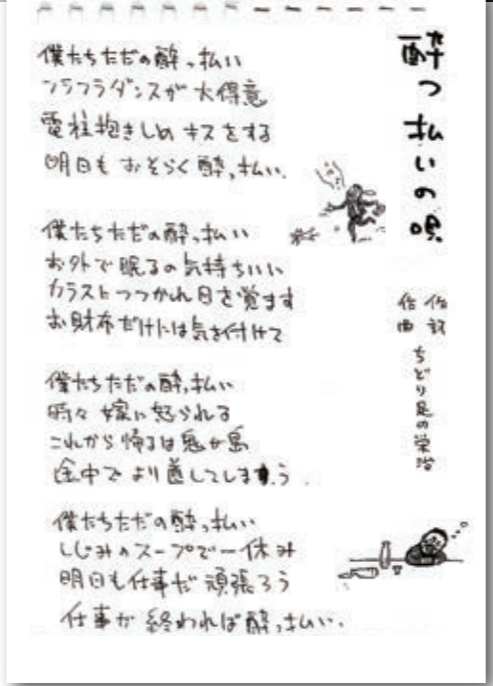 酔っ払いの唄
作詞
作曲
ちどり足の栄治
僕たちただの酔っ払い
フラフラダンスが大得意
電柱抱きしめキスをする
明日もおそらく酔っ払い.
僕たちただの酔っ払い
お外で眠るの気持ちいい
カラスにつつかれ目を覚ます
お財布だけには気を付けて
僕たちただの酔っ払い
時々嫁に怒られる
これから帰るは鬼ヶ島
途中でより道してしまう.
僕たちただの酔っ払い
しじみのスープで一休み
明日も仕事だ頑張ろう
仕事が終われば酔っ払い.